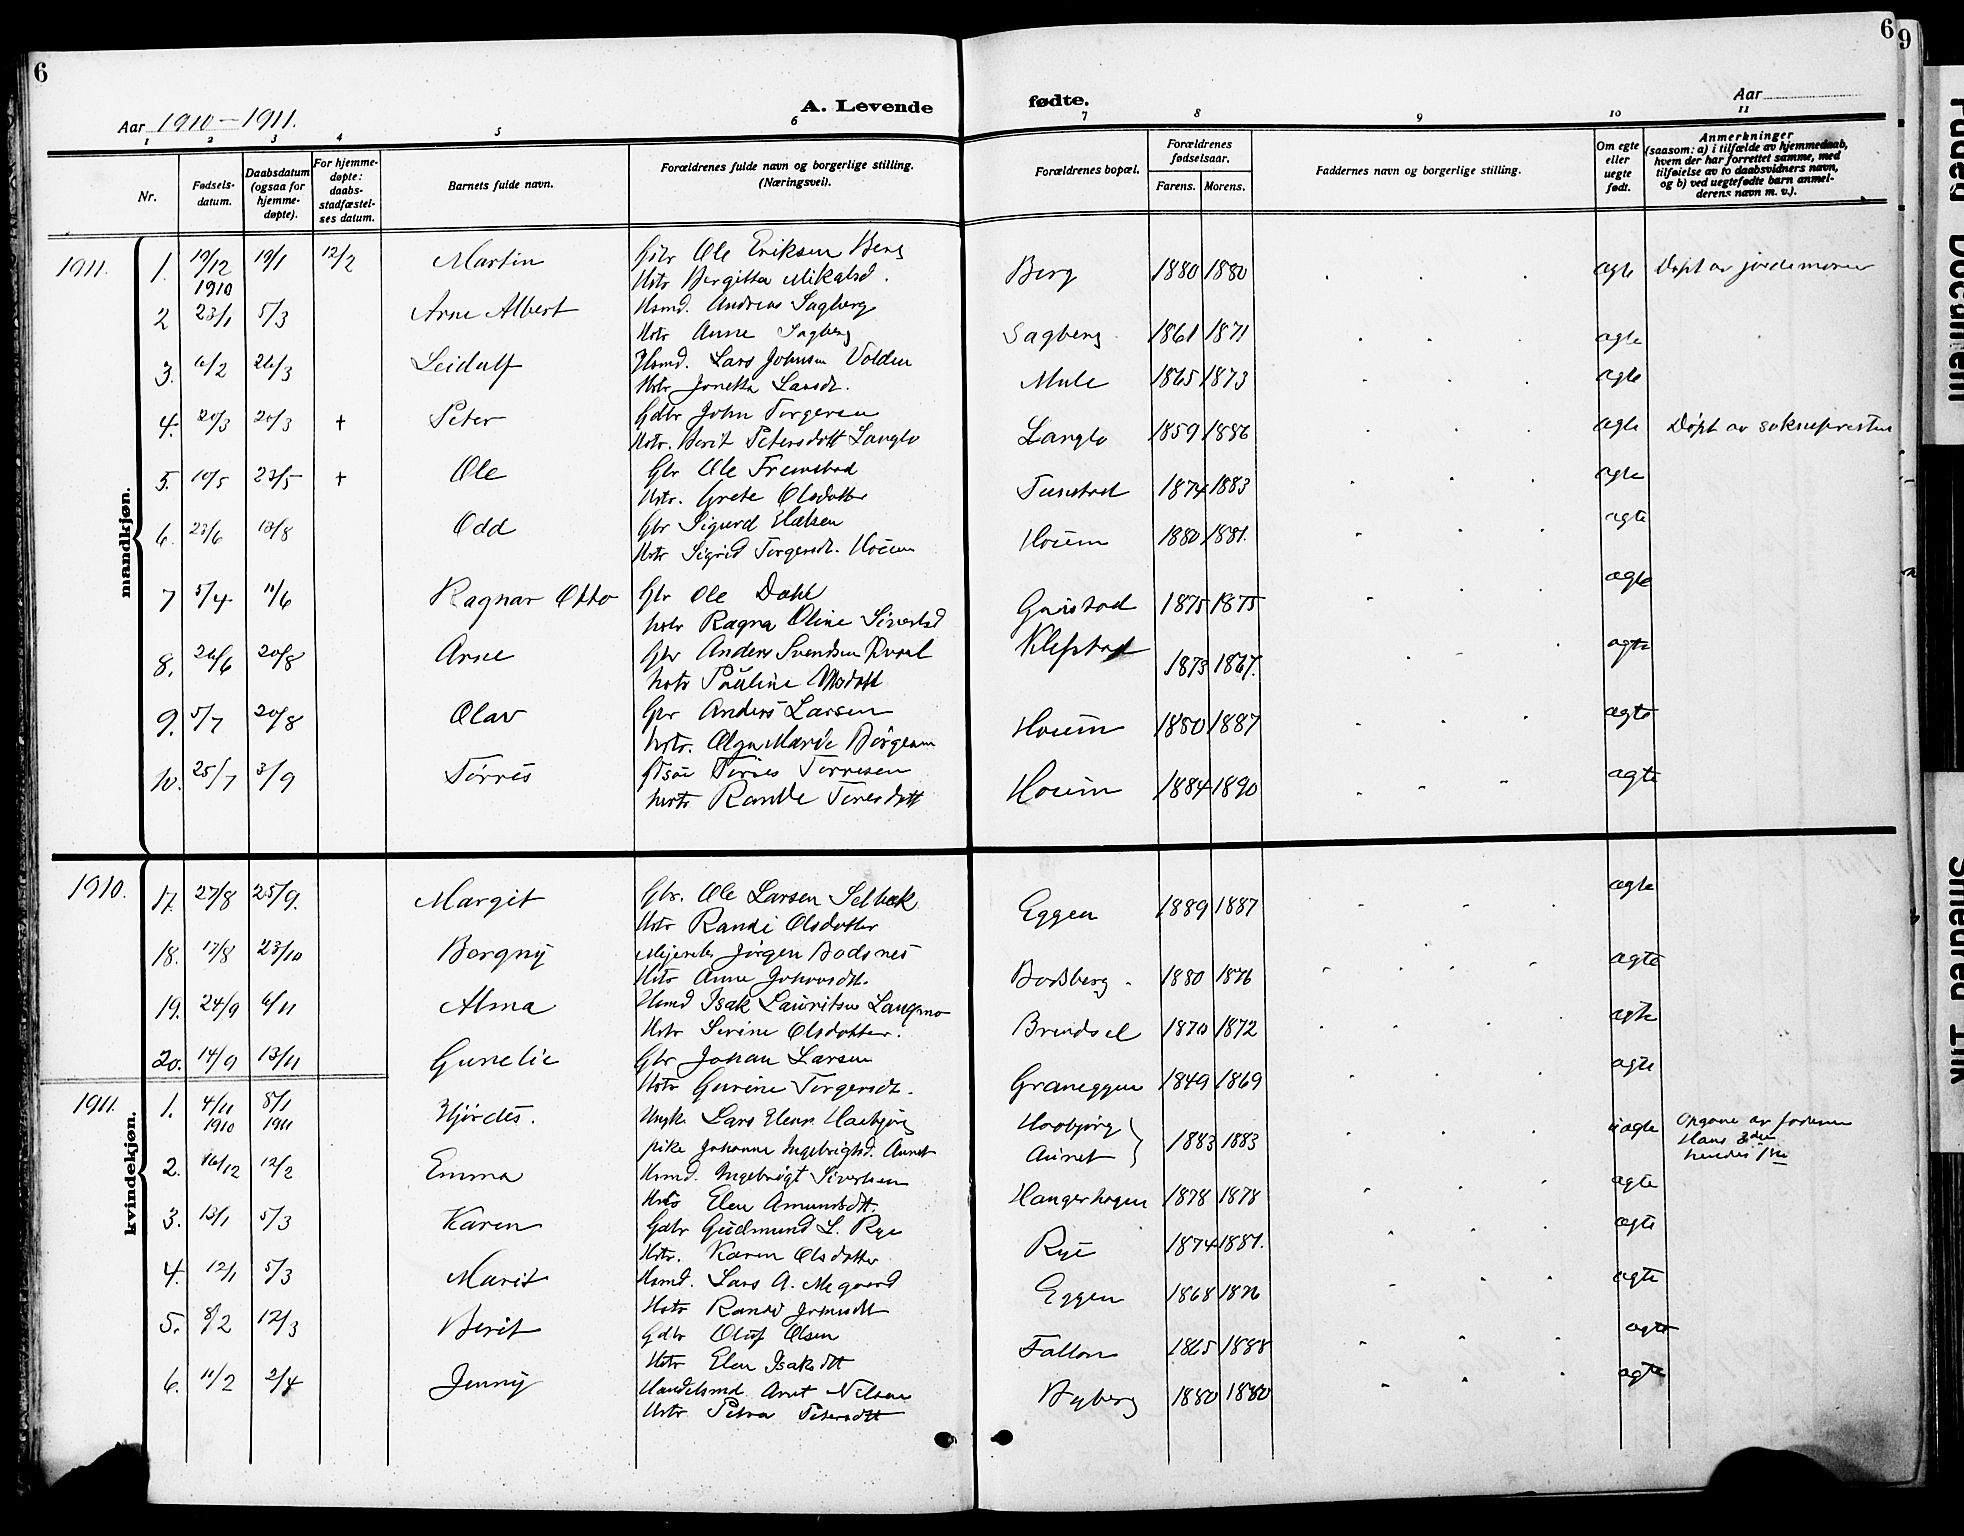 6
A. Levende
Aar 1910-1911.
1 2 3 4 5 6
Nr.
Fødsels-
datum.
Daabsdatum
(ogsaa for
hjemme-
døpte).
For hjemme-
døpte:
daabs-
stadfæstel-
ses datum.
Barnets fulde navn.
Forældrenes fulde navn og borgerlige stilling.
(Næringsvei).
mandkjøn.
1911. 1. 19/12 1910 19/1 12/2 Martin Gbr Ole Eriksen Berg
Hstr Bergitta Mikalsd.
2 23/1 5/3 Arne Albert Hsmd. Andreas Sagberg
Hstr Anne Sagberg
3. 6/2 26/3 Leidulf Hsmd. Lars Johnsen Volden
Hstr Jonetta Larsdt.
4. 20/3 20/3 + Peter Gdbr John Torgersen
Hstr. Berit Petersdott Langlo
5. 10/5 23/5 + Ole Gbr Ole Fremstad
Hstr. Grete Olsdatter
6. 23/6 13/8 Odd Gbr Sigurd
Hstr Sigrid Torgersdt. Hoem
7 5/4 11/6 Ragnar Otto Gbr Ole Dahl
hstr Ragna Oline Sivertsd
8. 26/6 20/8 Arne Gbr Anders Svendsen
hstr Pauline
9. 5/7 20/8 Olav Gbr Anders Larsen
hstr. Olga Marie
10. 25/7 3/9 Tørres Tørres Tørresen
hstr Randi
1910. 17. 27/8 25/9. Margit Gbr. Ole Larsen Selbæk
Hstr Randi Olsdatter
18. 17/8 23/10 Borgny Jørgen Bodsnes
Hstr Anne
19. 24/9 6/11 Alma Hsmd Isak Lauritsen Langmo
Hstr Serine Olsdotter.
20. 14/9 13/11 Gunelie Gbr Johan Larsen
Hstr Gurine Torgersdt.
kvindekjøn.
1911. 1. 4/11 1910 8/1 1911 Hjørdis. Ungk. Lars
pike Johanne Ingebrigtsd. Aunet
2. 16/12 12/2 Emma Hsmd. Ingebrigt Sivertsen
Hstr Elen Amundsdt.
3. 13/1 5/3 Karen Gdbr Gudmund L. Rye
Hstr. Karen Olsdotter
4. 12/1 5/3 Marit Hsmd. Lars A. Megaard
Hstr Randi
5. 8/2 12/3 Berit Gdbr Oluf Olsen
Hstr Elen Isaksdtt
6. 11/2 2/4 Jenny Handelsmd. Arnt Nilsen
Hstr Petra Petersdtt
6
9
fødte.
Aar
7 8 9 10 11
Forældrenes bopæl.
Forældrenes
fødselsaar.
Farens. Morens.
Faddernes navn og borgerlige stilling.
Om egte
eller
uegte
født.
Anmerkninger
(saasom: a) i tilfælde av hjemmedaab,
hvem der har forrettet samme, med
tilføielse av to daabsvidners navn,
og b) ved uegtefødte barn anmel-
derens navn m. v.).
Berg 1880 1880 ægte Døpt av jordemoren
Sagberg 1861 1871 ægte
Mule 1865 1873 ægte
Langlo 1859 1886 ægte Døpt av soknepresten
1874 1883 ægte
Hoem 1880 1881. ægte
1875 1875 ægte
Klefstad 1873 1867. ægte
Hoem 1880 1887 ægte
Hoem 1884 1890 ægte
Eggen 1889 1887 ægte
Bodsberg 1880 1876 ægte
1870 1872 ægte
Graneggen 1849 1869 ægte
Aunet } 1883 1883 uægte Opgave av faderen
Hans 3die
hendes 1ste
Haugerhagen 1878 1878 ægte
Rye 1874 1881. ægte
Eggen 1868 1876 ægte
Fallon 1865 1888 ægte
Byberg 1880 1880 ægte
Faded Document
Smeared Ink